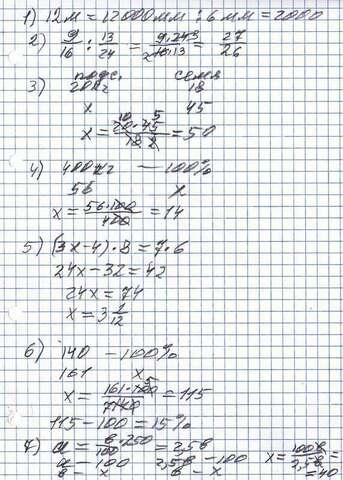 1) 12м = 12000мм : 6мм = 2000
2) 9/16 : 13/24 = 9·24 3/2 16·13 = 27/26
3) подс. семя
20кг 18
x 45
x = 20·45/18 = 50
4) 400кг — 100%
56 x
x = 56·100/400 = 14
5) (3x-4)·8 = 7·6
24x - 32 = 42
24x = 74
x = 3 1/12
6) 140 — 100%
161 x
x = 161·100 5/7 140 = 115
115-100 = 15%
7) a = в·250/100 = 2,5в
a — 100 2,5в — 100 x = 100в/2,5в = 40
в — x в — x